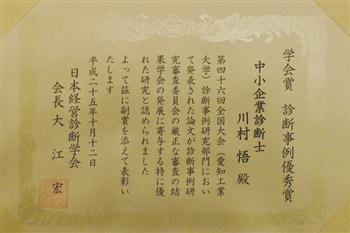 学会賞　診断事例優秀賞
中小企業診断士
川村　悟　殿
第四十六回全国大会（愛知工業
大学）診断事例研究部門におい
て発表された論文が診断事例研
究審査委員会の厳正な審査の結
果学会の発展に寄与する特に優
れた研究と認められました
よって茲に副賞を添えて表彰い
たします
平成二十五年十月十二日
日本経営診断学会
会長　大江　宏